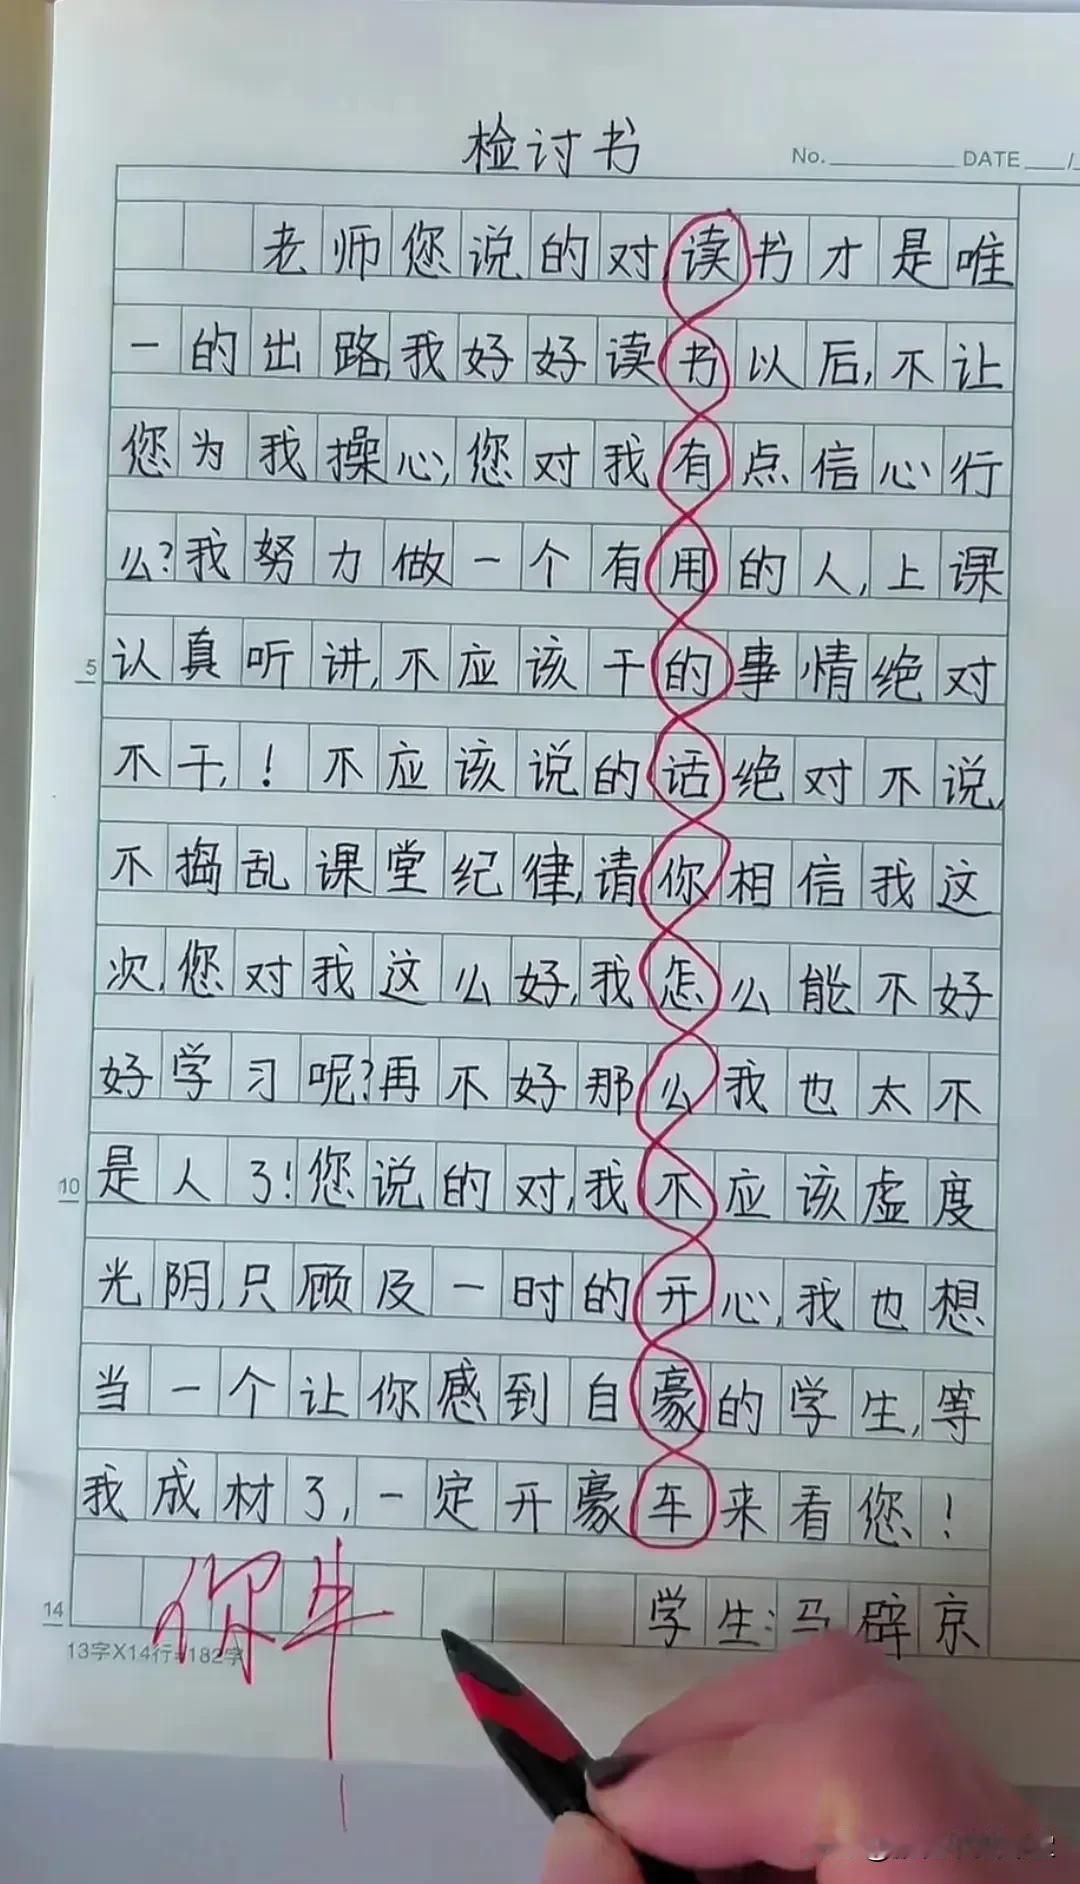 检讨书
No. DATE /
老师您说的对,读书才是唯
一的出路,我好好读书以后,不让
您为我操心,您对我有点信心行
么?我努力做一个有用的人,上课
5
认真听讲,不应该干的事情绝对
不干,!不应该说的话绝对不说,
不捣乱课堂纪律,请你相信我这
次,您对我这么好,我怎么能不好
好学习呢?再不好那么我也太不
10
是人了!您说的对,我不应该虚度
光阴,只顾及一时的开心,我也想
当一个让你感到自豪的学生,等
我成材了,一定开豪车来看您!
14
学生:马辟京
你牛
13字X14行=182字